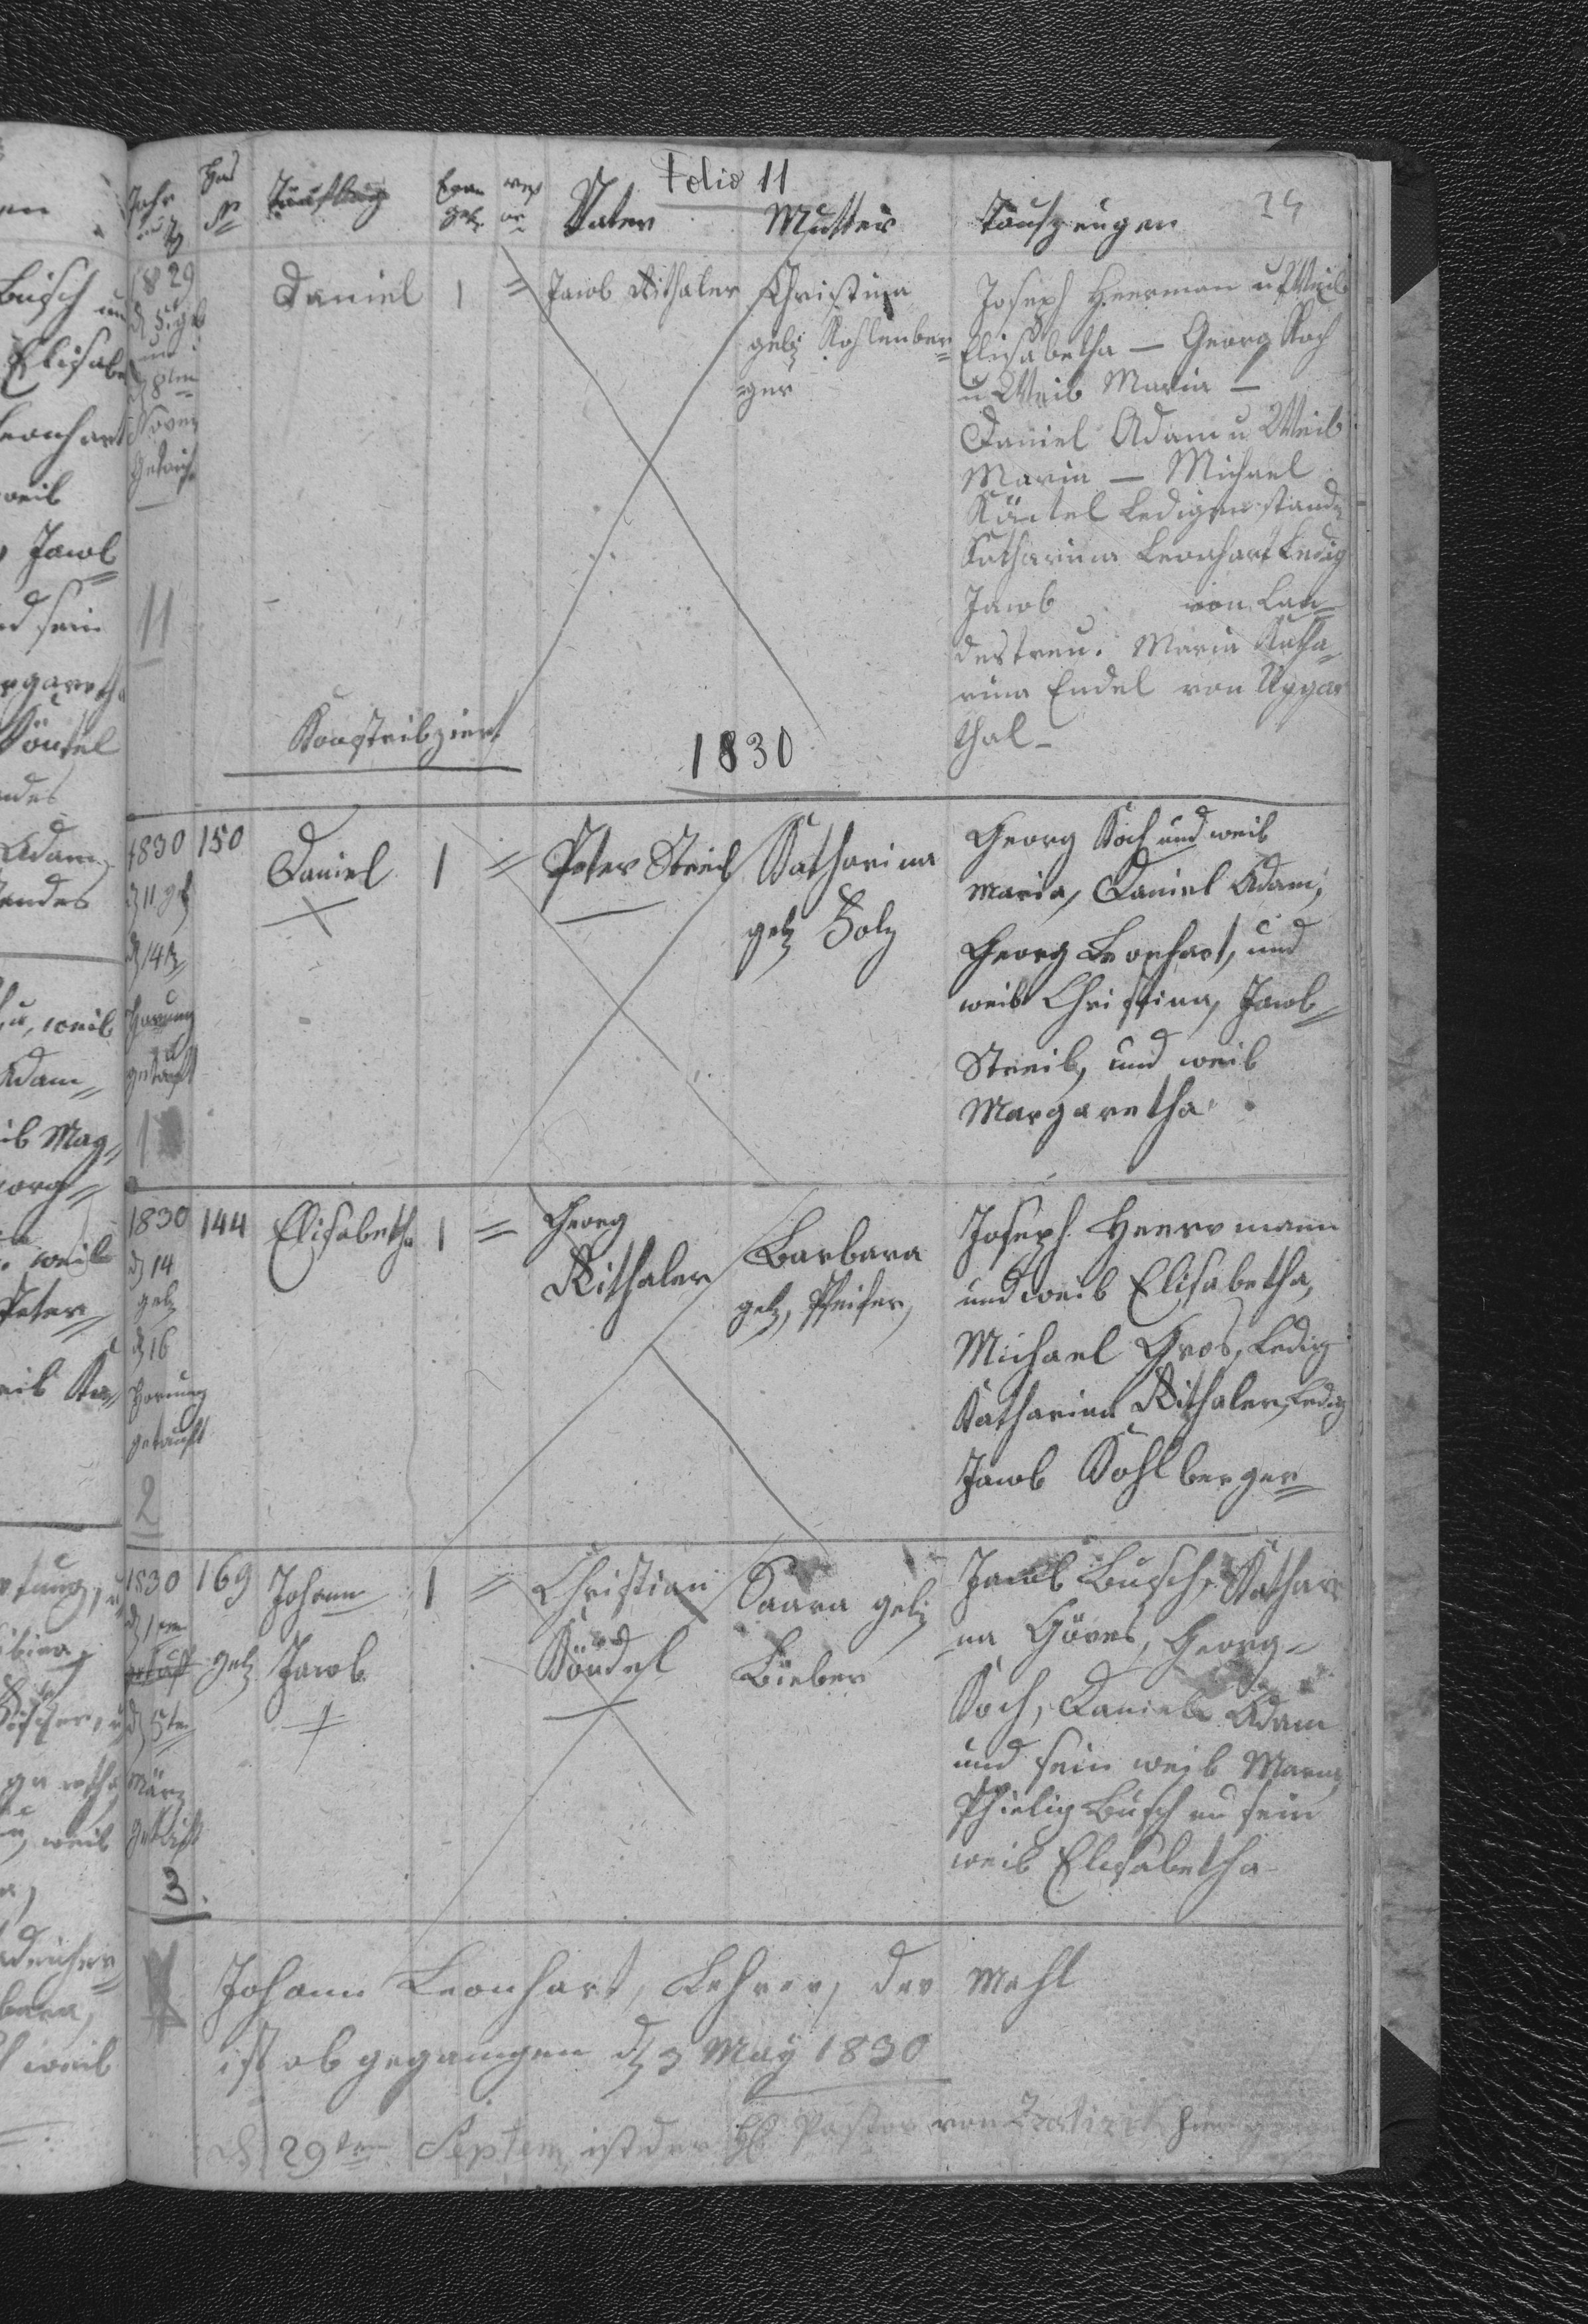 Folio 11
24
Jahr
Haus
Nr
Täufling
Evan
gel.
ref
or
Vater
Mutter
Taufzeugen
1829
d 5 geb
und
d 8ten
Novem
getauft
11
Daniel
1
=
Jacob Rithaler
Christina
geb Kohlenber=
=ger
Joseph Heerman u Weib
Elisabetha — Georg Koch
u Weib Maria —
Daniel Adam u Weib
Maria — Michael
Köntel Ledigenstands
Katharina Leonhart Ledig
Jacob von Lan=
destreu. Maria Katha=
rina Endel von Ugger
thal —
Konstribziert
1830
1830
d 11 geb
d 14
Hornung
getauft
1
150
Daniel
1
=
Peter Streib
Katharina
geb Bolz
Georg Koch und weib
Maria, Daniel Adam,
Georg Leonhart, und
weib Christina, Jacob=
Streib, und weib
Margaretha
1830
d 14
geb
d 16
Hornung
getauft
2
144
Elisabetha
1
=
Georg
Rithaler
Barbara
geb, Pfeifer,
Joseph Heerrmann
und weib Elisabetha,
Michael Gros, Ledig
Katharina Rithaler, Ledig
Jacob Kohlberger=
1830
d 1ten
getauft
geb
d 5ten
März
getauft
3.
169
Johann
Jacob
1
=
Christian
Köndel
Saara geb
Bieber
Jacob Busch, Kathari
na Göres, Georg=
Koch, Daniel Adam
und sein weib Maria,
Phielip Busch u sein
weib Elisabetha
Johann Leonhart, Lehrer, der Mahl
ist abgegangen d 3 May 1830
d 29ten Septem ist der H Pastor von hier